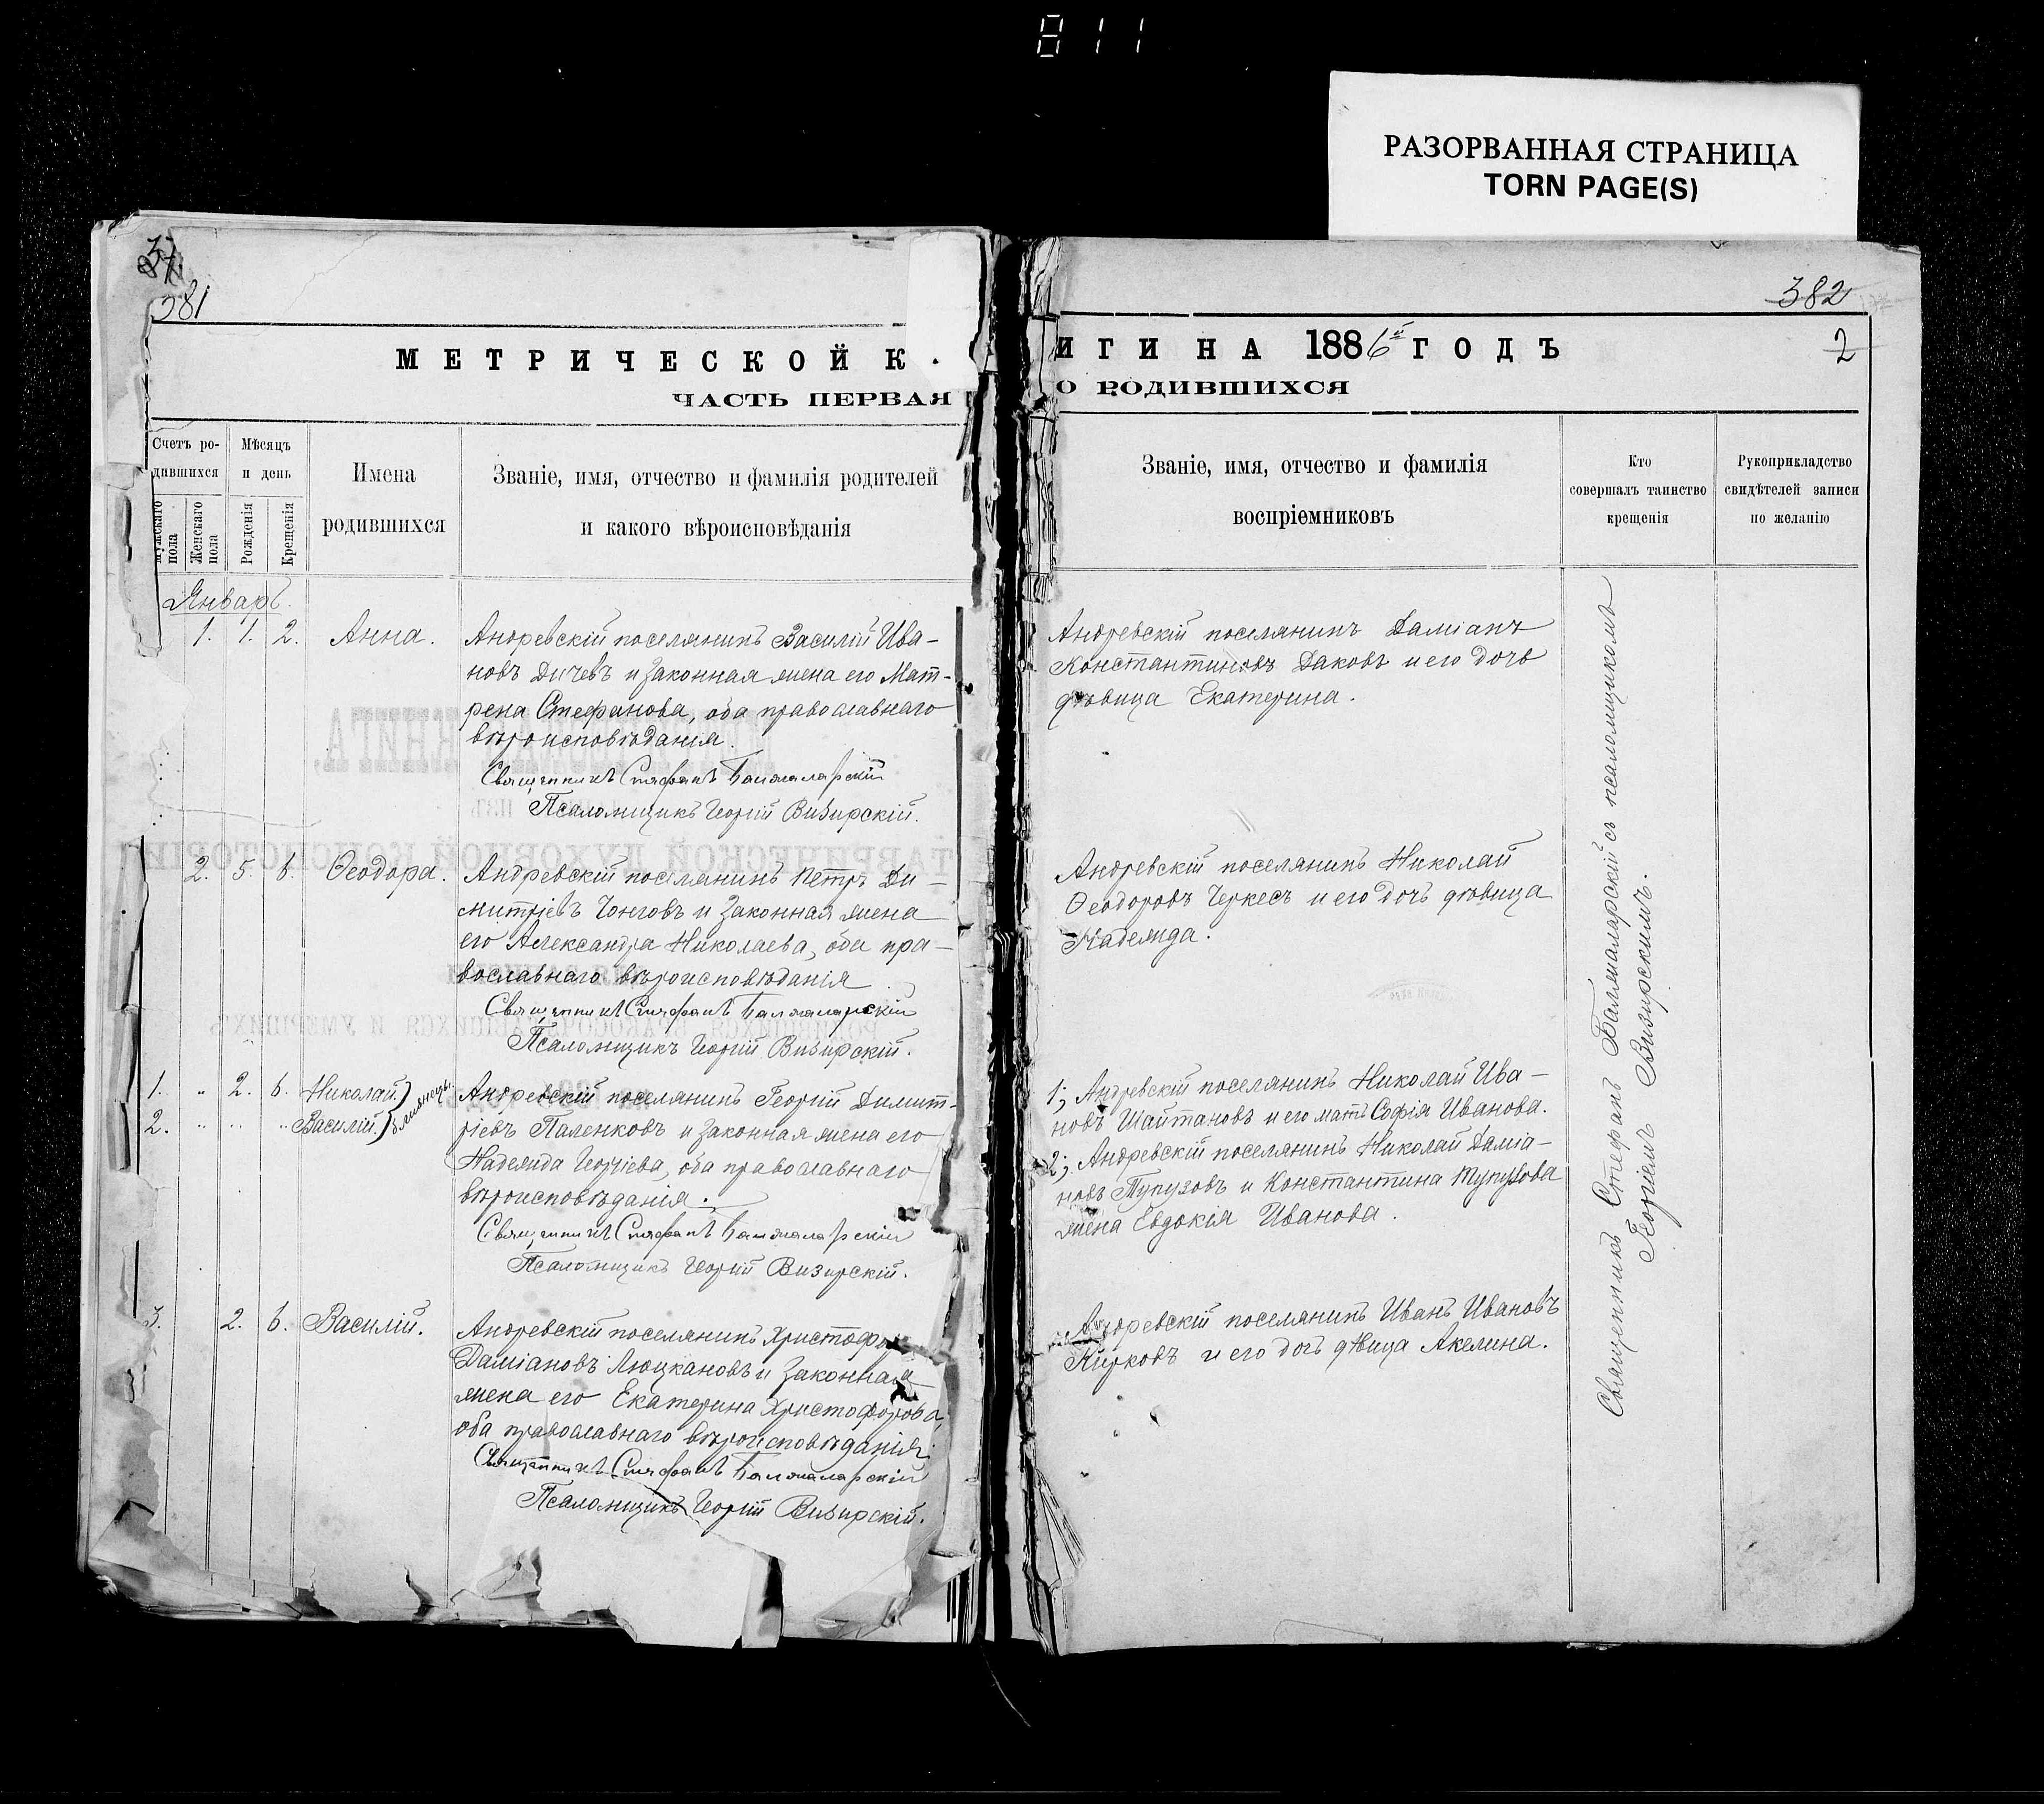 811
РАЗОРВАННАЯ СТРАНИЦА
TORN PAGE(S)
37.
381
МЕТРИЧЕСКОЙ К
ЧАСТЬ ПЕРВАЯ
Счетъ ро-
дившихся
Мѣсяцъ
и день
Имена
родившихся
Званіе, имя, отчество и фамилія родителей
и какого вѣроисповѣданія
Мужскаго
пола
Женскаго
пола
Рожденія
Крещенія
Январь.
1. 1. 2. Анна.
Андревскій поселянинъ Василій Ива-
новъ Дичевъ и законная жена его Мат-
рена Стефанова, оба православнаго
вѣроисповѣданія.
Священникъ Стефанъ Балжаларскій
Псаломщикъ Георгій Визирскій.
2. 5. 6. Ѳеодора.
Андревскій поселянинъ Петръ Ди-
митріевъ Чонговъ и законная жена
его Александра Николаева, оба пра-
вославнаго вѣроисповѣданія
Священникъ Стефанъ Балжаларскій
Псаломщикъ Георгій Визирскій.
1. " 2. 6. Николай
2. " " " Василій. близнецы
Андревскій поселянинъ Георгій Димит-
ріевъ Паленковъ и законная жена его
Надежда Георгіева, оба православнаго
вѣроисповѣданія.
Священникъ Стефанъ Балжаларскій
Псаломщикъ Георгій Визирскій.
3. 2. 6. Василій.
Андревскій поселянинъ Христофоръ
Даміановъ Люцкановъ и законная
жена его Екатерина Христофорова,
оба православнаго вѣроисповѣданія.
Священникъ Стефанъ Балжаларскій
Псаломщикъ Георгій Визирскій.
382
2
ИГИ НА 1886й ГОДЪ
О РОДИВШИХСЯ
Званіе, имя, отчество и фамилія
воспріемниковъ
Кто
совершалъ таинство
крещенія
Рукоприкладство
свидѣтелей записи
по желанію
Андревскій поселянинъ Даміанъ
Константиновъ Даковъ и его дочь
дѣвица Екатерина.
Андревскій поселянинъ Николай
Ѳеодоровъ Черкесъ и его дочь дѣвица
Надежда.
1; Андревскій поселянинъ Николай Ива-
новъ Шайтановъ и его мать Софія Иванова.
2; Андревскій поселянинъ Николай Даміа-
новъ Тупузовъ и Константина Тупузова
жена Евдокія Иванова.
Андревскій поселянинъ Иванъ Ивановъ
Кирковъ и его дочь дѣвица Акелина.
Священникъ Стефанъ Балжаларскій съ псаломщикомъ
Георгіемъ Визирскимъ.